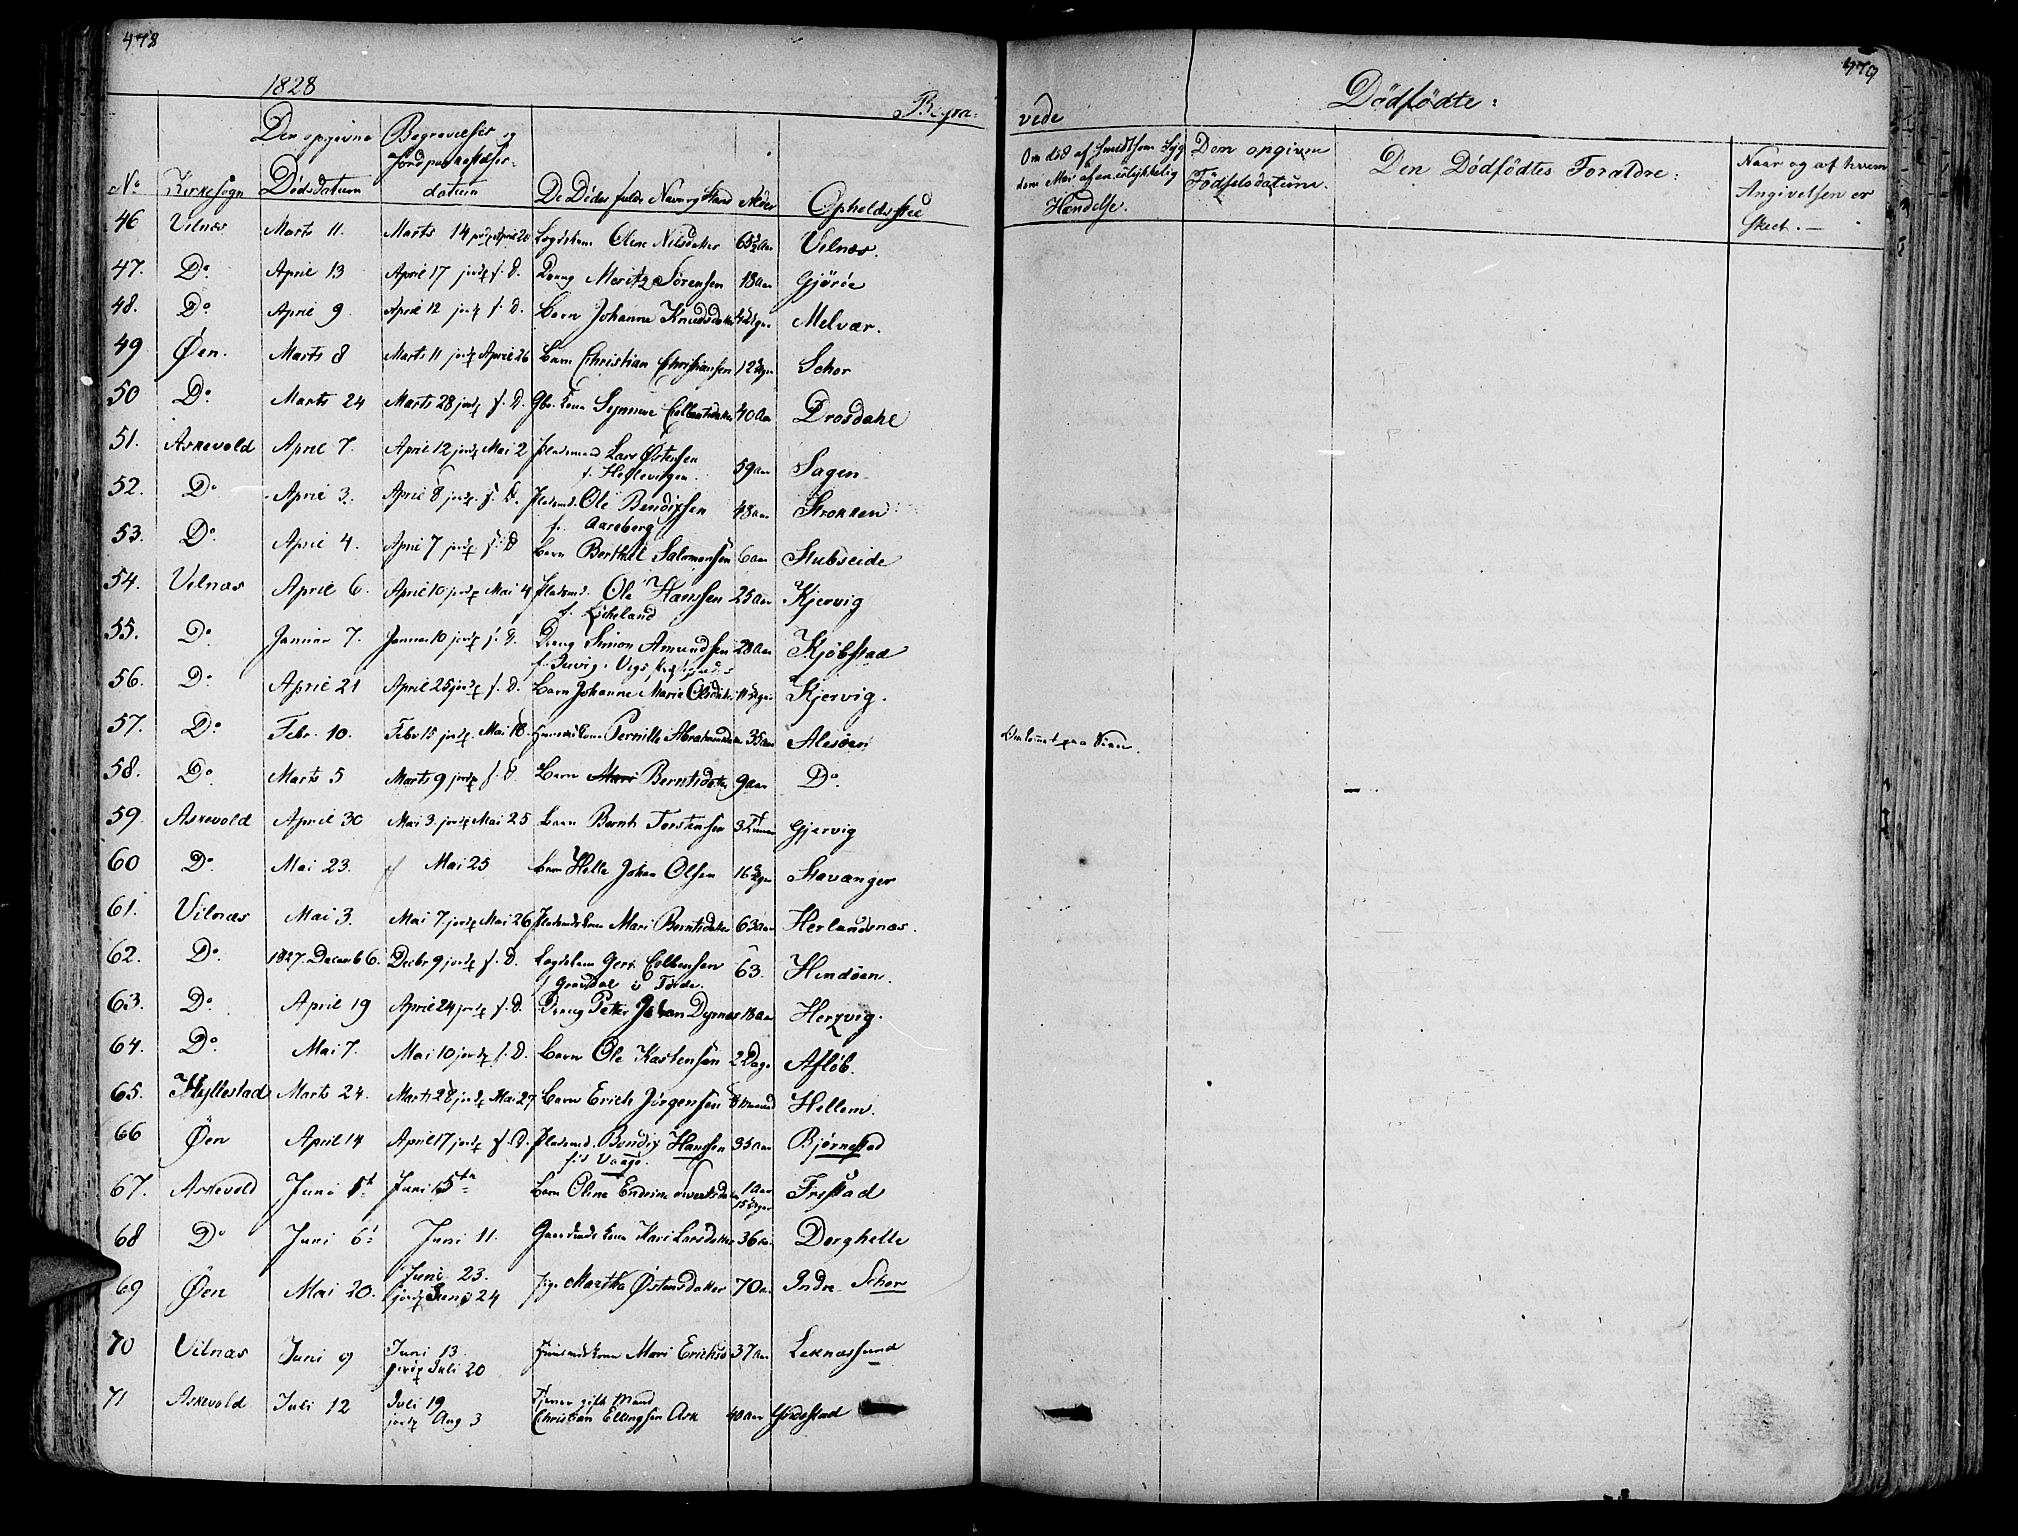 478
1828
Begra-
No
Kirkesogn
Den opgivne Dødsdatum
Begravelses og Jordpaakastelses-datum
De Dødes fulde Navn og Stand
Alder
Opholdssted
46 Vilnæs Marts 11. Marts 14 jordf. April 20 Logdslem Oline Nilsdatter 65 1/2 Aar Vilnæs.
47. Do April 13 April 17 jordf. f. d. Dreng Moritz Sørensen 18 Aar Gjørøe
48. Do April 9 April 12 jordf. f. d. Barn Johanne Knudsdatter Melvær.
49 Øen. Marts 8 Marts 11 jordf. April 26 Barn Christian Christiansen 12 Uger Schor
50 Do Marts 24 Marts 28 jordf. f. d. Gbr. Kone Synneve 40 Aar Drosdahl
51. Askevold April 7. April 12 jordf. Mai 2 Pladsmand Lars Østensen
f. Hellevigen. 59 Aar Sagen
52. Do April 3. April 8 jordf. f. d. Pladsmd. Ole Bendixsen
f. Aareberg 48 Aar Strokken
53. Do April 4. April 7 jordf. f. d. Barn Berthel Salomonsen 6 Aar Stubseide
54. Vilnæs April 6. April 10 jordf. Mai 4 Pladsmd. Ole Hanssen 25 Aar Kjervig
55. Do Januar 7. Januar 10 jordf. f. d. Dreng Simon Amundsen 28 Aar Kjøbstad
56. Do April 21 April 25 jordf. f. d. Barn Johanne Marie Olsdatter Kjervig.
57. Do Febr. 10. Febr 15 jordf. Mai 18. Huusmdskone Pernille Abrahamsdatter 35 Aar Alesøen
58. Do Marts 5 Marts 9 jordf. f. d. Barn Mari Berntsdatter 9 Aar Do
59. Askevold April 30 Mai 3. jordf. Mai 25 Barn Bernt Torstensen Gjervig
60 Do Mai 23. Mai 25 Barn Helle Johan Olsen 16 Uger Stavanger
61. Vilnæs Mai 3. Mai 7. jordf. Mai 26 Pladsmdskone Mari Berntsdatter 63 Aar Herlandsnæs.
62. Do 1827. Decemb 6. Decbr 9 jordf. f. d. Logdslem Gert
f. Gravdal i Førde. 63. Hindøen.
63. Do April 19 April 24 jordf. f. d. Dreng Peter Johan Dyrnes 18 Aar Herzvig.
64. Do Mai 7. Mai 10 jordf. f. d. Barn Ole Karstensen 2 Dage Afløb.
65. Hyllestad Marts 24. Marts 28 jordf. Mai 27 Barn Erich Jørgensen Hellem.
66 Øen April 14 April 17 jordf. f. d. Pladsmd. Bendix Hanssen 35 Aar Bjørnestad
67. Askevold Juni 5t Juni 15te Barn Oline 1 Aar 15 Uger Fristad
68 Do Juni 6t Juni 11. Gaardmds kone Kari Larsdatter 36 Aar Dorghelle
69 Øen Mai 20. Juni 23.
jordf. Juni 24 Pige Martha Østensdatter 70 Aar Indre Schor
70 Vilnæs Juni 9 Juni 13
jordf. Juli 20 Huusmdskone Mari Erichsd 37 Aar Leknæssund
71 Askevold Juli 12 Juli 19
jordf. Aug 3 Tjener gift Mand
Christian Ellingsen Ask 40 Aar
479
vede
Dødfødte:
Om død af smitsom Syg-dom eller af en ulykkelig Hændelse.
Den opgivne Fødselsdatum.
Den Dødfødtes Forældre:
Naar og af hvem Angivelsen er skeet.
Omkommet paa Søen.